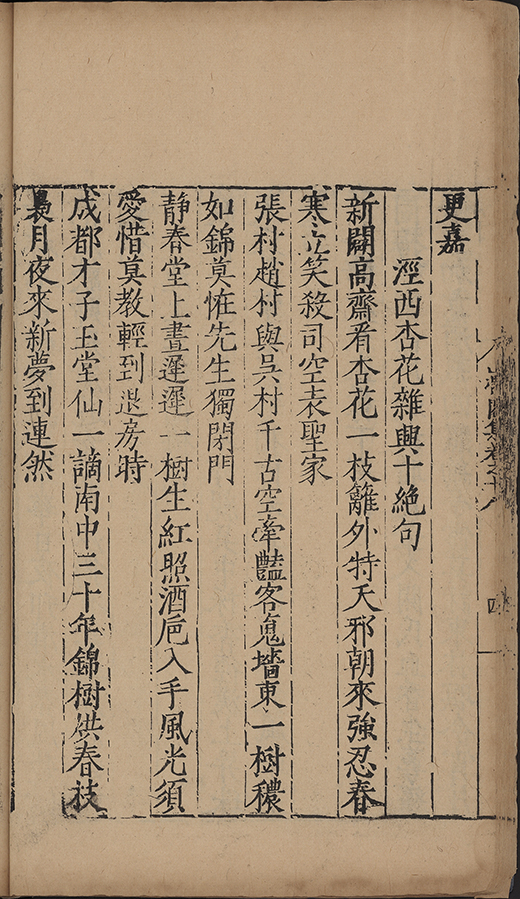 更嘉
涇西杏花雜興十絕句
新闢高齋看杏花一枝籬外特夭邪朝來強忍春
寒立笑殺司空表聖家
張村趙村與吳村千古空牽豔客䰟墻東一樹穠
如錦莫恠先生獨閉門
静春堂上晝遲遲一樹生紅照酒巵入手風光須
愛惜莫教輕到退房時
成都才子玉堂仙一謫南中三十年錦樹供春枝
裊月夜來新夢到連然
集卷之十八
四